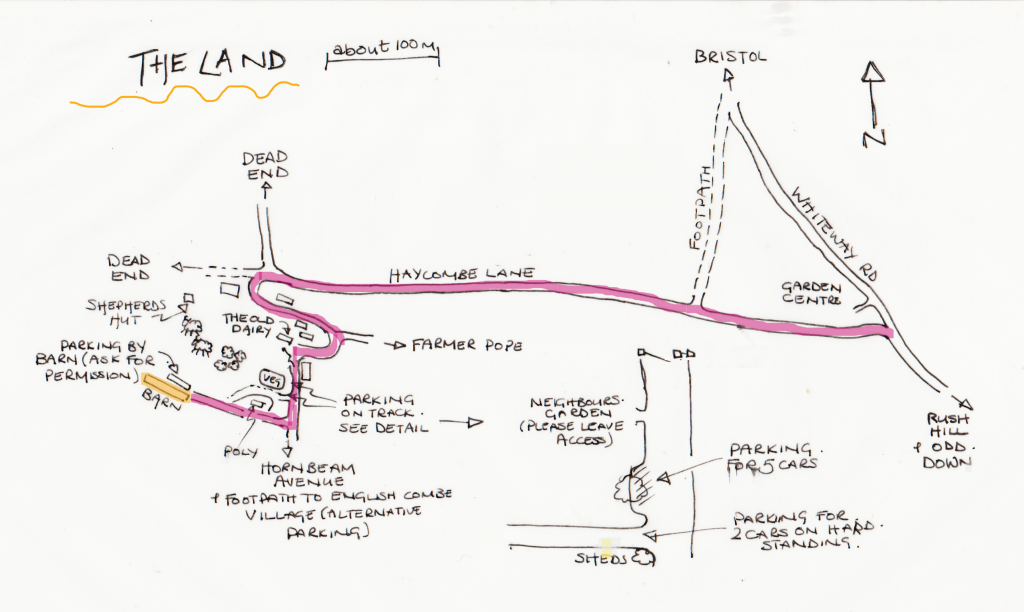 THE LAND
about 100m
BRISTOL
N
DEAD
END
FOOTPATH
WHITEWAY RD
DEAD
END
HAYCOMBE LANE
GARDEN
CENTRE
SHEPHERDS
HUT
THE OLD
DAIRY
FARMER POPE
PARKING BY
BARN (ASK FOR
PERMISSION)
BARN
VEG
PARKING
ON TRACK.
SEE DETAIL
POLY
NEIGHBOURS.
GARDEN
(PLEASE LEAVE
ACCESS)
RUSH
HILL
+ ODD.
DOWN
PARKING.
FOR 5 CARS
HORNBEAM
AVENUE
+ FOOTPATH TO ENGLISH COMBE
VILLAGE (ALTERNATIVE
PARKING)
PARKING FOR.
2 CARS ON HARD.
STANDING.
SHEDS